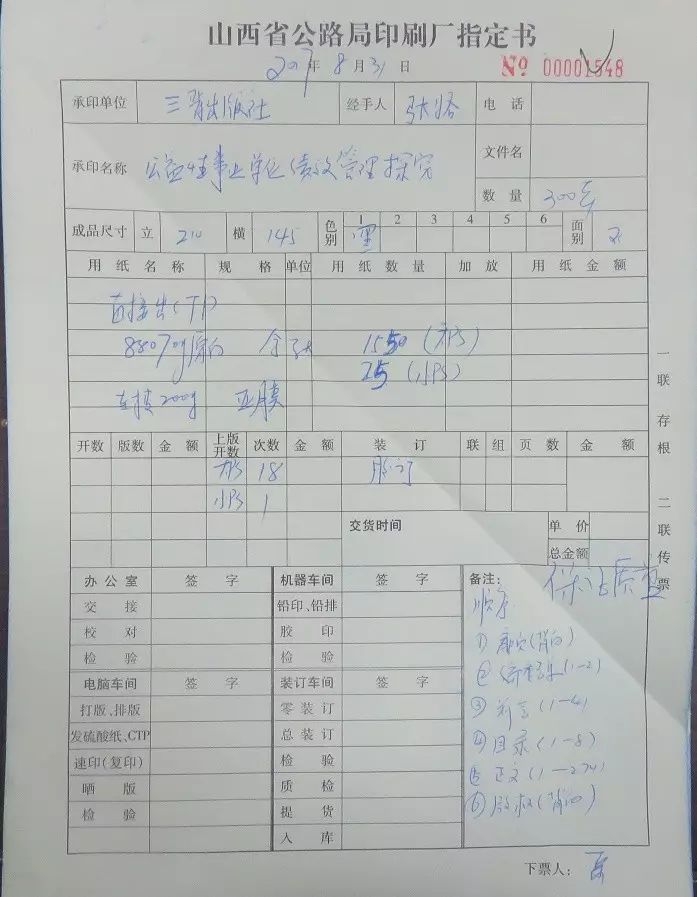 山西省公路局印刷厂指定书
2017年8月31日 № 00001548
承印单位 三晋出版社 经手人 电话
承印名称 公益性事业单位绩效管理探究 文件名
数量 300册
成品尺寸 立 210 横 145 色别 1 2 3 4 5 6 面别
用纸名称 规格 单位 用纸数量 加放 用纸金额
直接出CTP
全张 1550(大PS)
25(小PS)
200g 亚膜
开数 版数 金额 上版开数 次数 金额 装订 联 组 页数 金额
大PS 18 胶订
小PS 1
交货时间 单价
总金额
办公室 签字 机器车间 签字 备注: 保证质量
交接 铅印、铅排 顺序
校对 胶印 ① 扉页(背白)
检验 检验 ② (1-2)
电脑车间 签字 装订车间 签字 ③ 前言(1-4)
打版、排版 零装订 ④ 目录(1-8)
发硫酸纸、CTP 总装订 ⑤ 正文(1-274)
速印(复印) 检验 ⑥ (背白)
晒版 质检
检验 提货
入库
一联存根 二联传票
下票人: